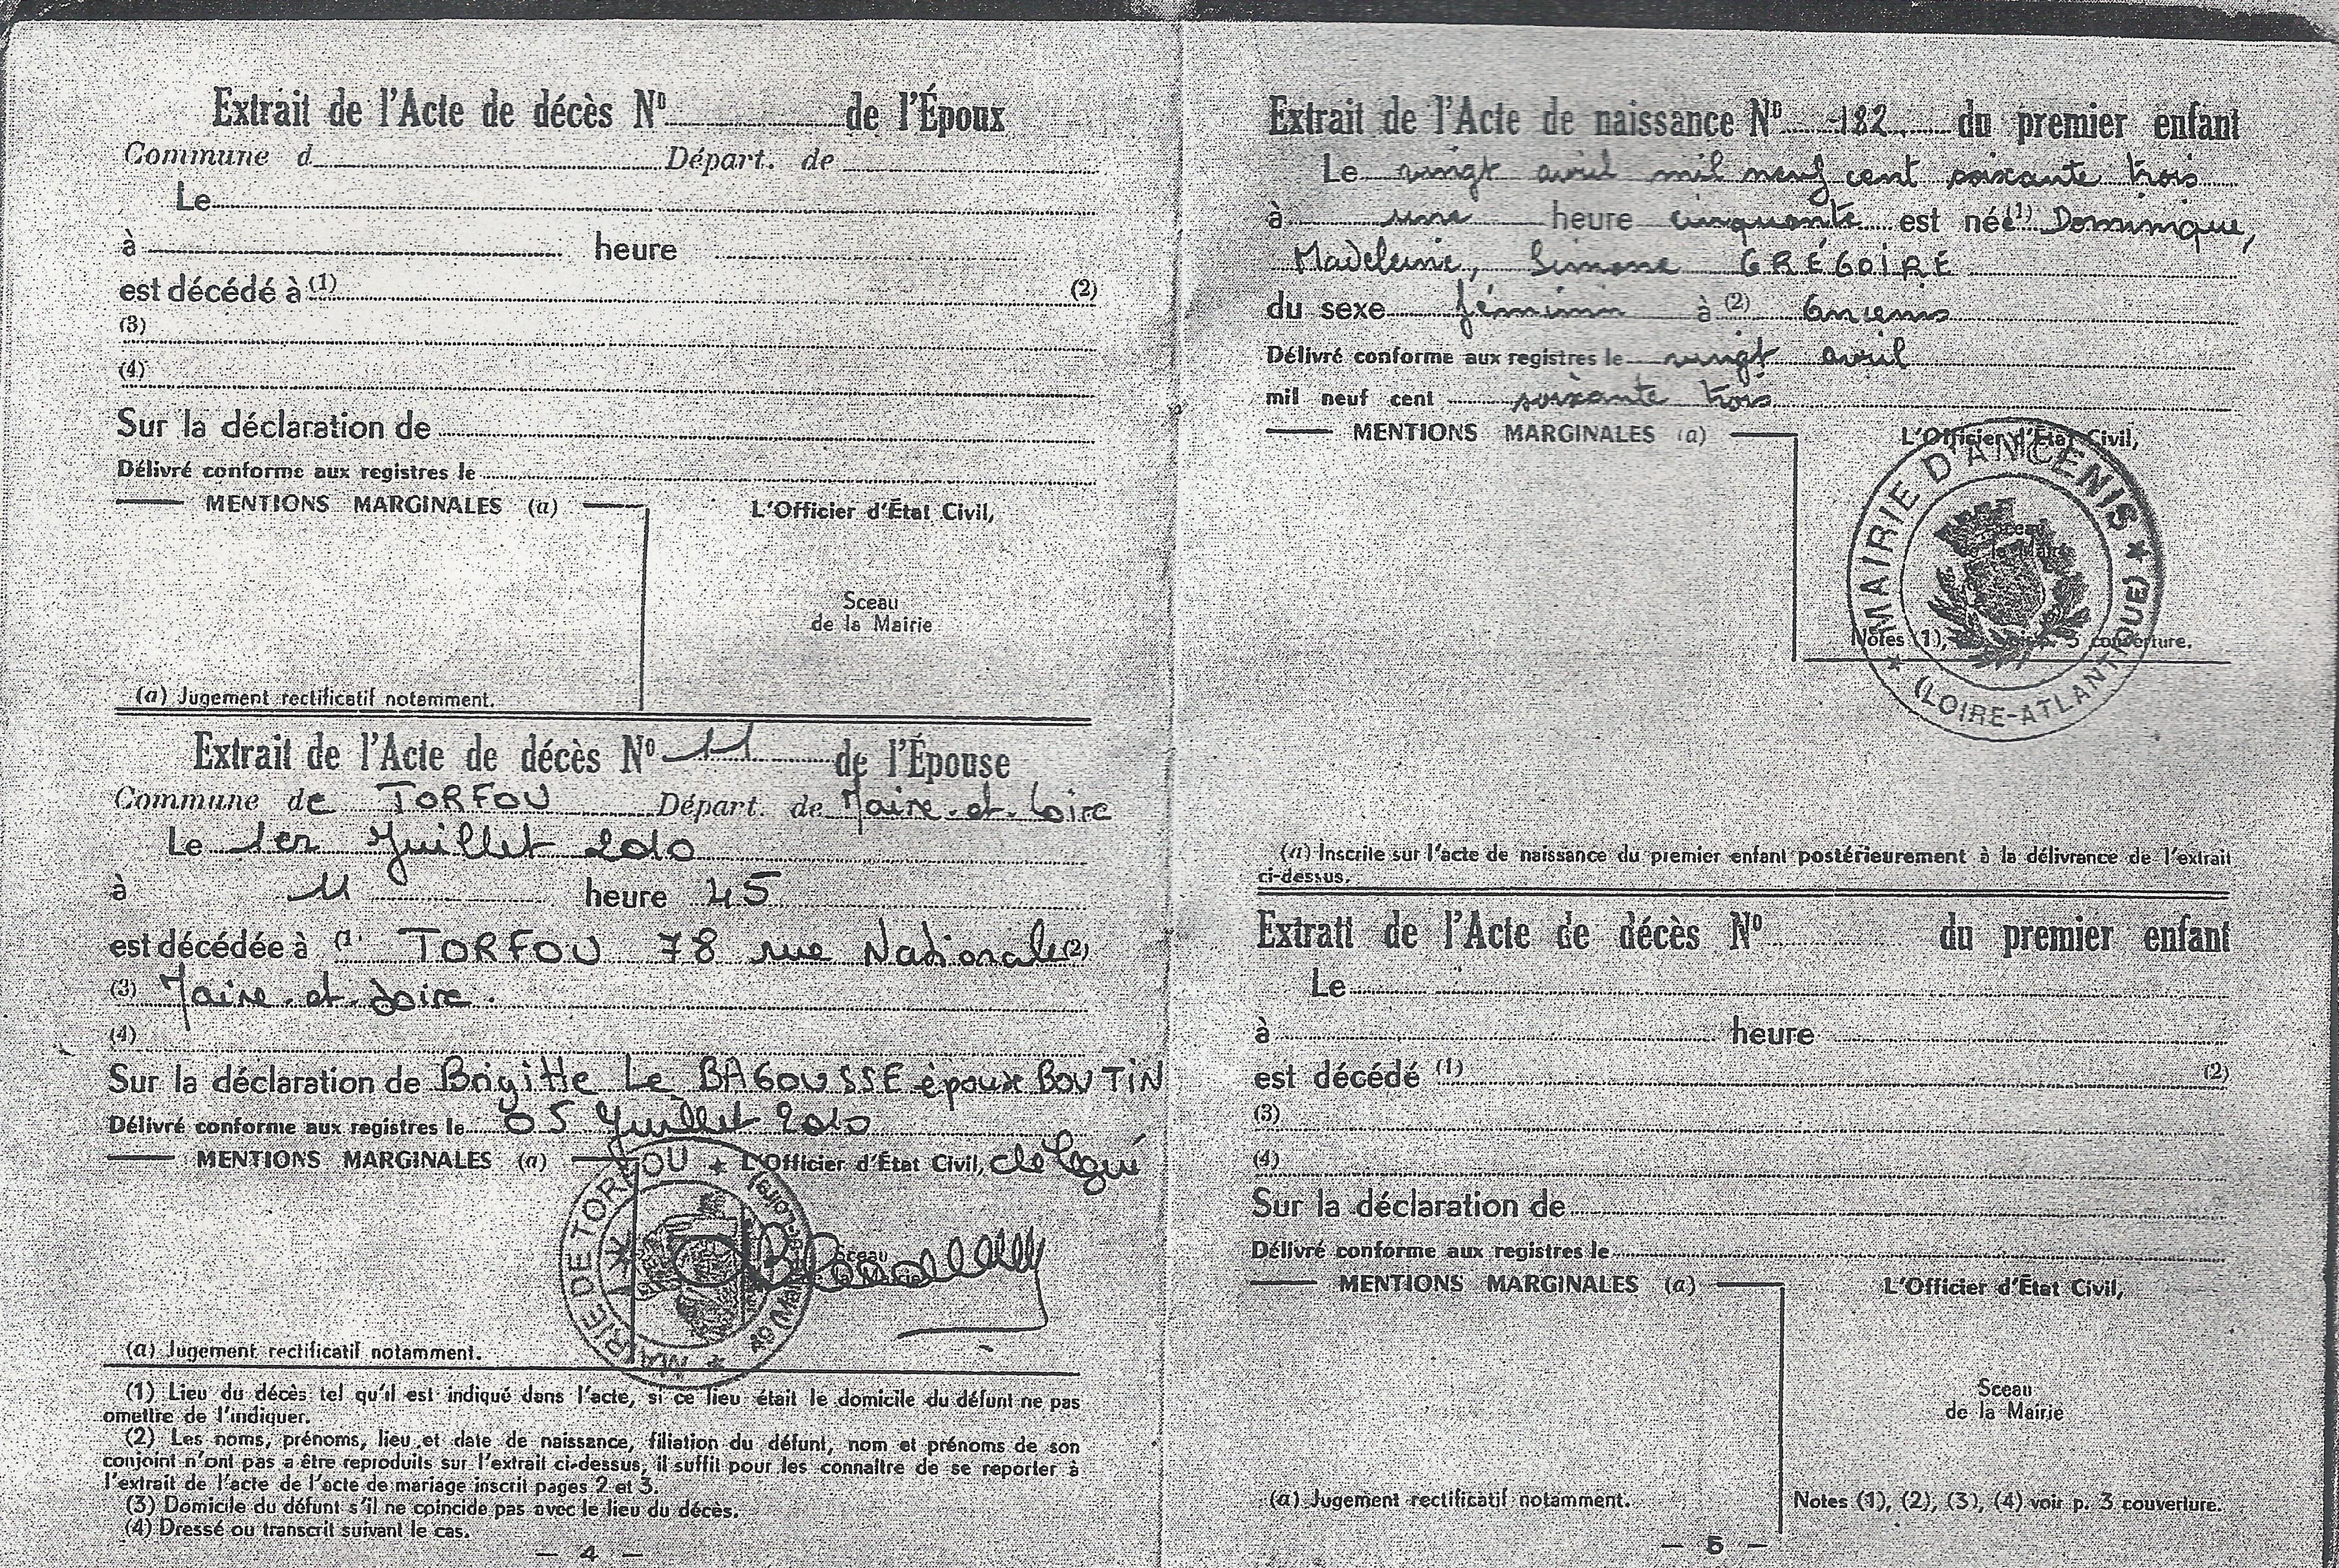 Extrait de l'Acte de décès Nº de l'Époux
Commune d Départ. de
Le
à heure
est décédé à (1) (2)
(3)
(4)
Sur la déclaration de
Délivré conforme aux registres le
MENTIONS MARGINALES (a)
L'Officier d'État Civil,
Sceau
de la Mairie
(a) Jugement rectificatif notamment.
Extrait de l'Acte de décès Nº 11 de l'Épouse
Commune de TORFOU Départ. de Maine-et-Loire
Le 1er Juillet 2010
à 11 heure 45
est décédée à (1) TORFOU 78 rue Nationale (2)
(3) Maine-et-Loire.
(4)
Sur la déclaration de Brigitte Le BAGOUSSE époux BOUTIN
Délivré conforme aux registres le 05 Juillet 2010
MENTIONS MARGINALES (a)
L'Officier d'État Civil, délégué
MAIRIE DE TORFOU ★ 49 (Maine-et-Loire) ★
Sceau
de la Mairie
(a) Jugement rectificatif notamment.
(1) Lieu du décès tel qu'il est indiqué dans l'acte, si ce lieu était le domicile du défunt ne pas
omettre de l'indiquer.
(2) Les noms, prénoms, lieu et date de naissance, filiation du défunt, nom et prénoms de son
conjoint n'ont pas a être reproduits sur l'extrait ci-dessus, il suffit pour les connaître de se reporter à
l'extrait de l'acte de l'acte de mariage inscrit pages 2 et 3.
(3) Domicile du défunt s'il ne coincide pas avec le lieu du décès.
(4) Dressé ou transcrit suivant le cas.
— 4 —
Extrait de l'Acte de naissance Nº 182 du premier enfant
Le vingt avril mil neuf cent soixante trois
à une heure cinquante est née (1) Dominique,
Madeleine, Simone GRÉGOIRE
du sexe féminin à (2) Ancenis
Délivré conforme aux registres le vingt avril
mil neuf cent soixante trois
MENTIONS MARGINALES (a)
L'Officier d'État Civil,
MAIRIE D'ANCENIS ★ (LOIRE-ATLANTIQUE) ★
Sceau
de la Mairie
Notes (1), voir p. 3 couverture.
(a) Inscrite sur l'acte de naissance du premier enfant postérieurement à la délivrance de l'extrait
ci-dessus.
Extrait de l'Acte de décès Nº du premier enfant
Le
à heure
est décédé (1) (2)
(3)
(4)
Sur la déclaration de
Délivré conforme aux registres le
MENTIONS MARGINALES (a)
L'Officier d'État Civil,
Sceau
de la Mairie
(a) Jugement rectificatif notamment.
Notes (1), (2), (3), (4) voir p. 3 couverture.
— 5 —